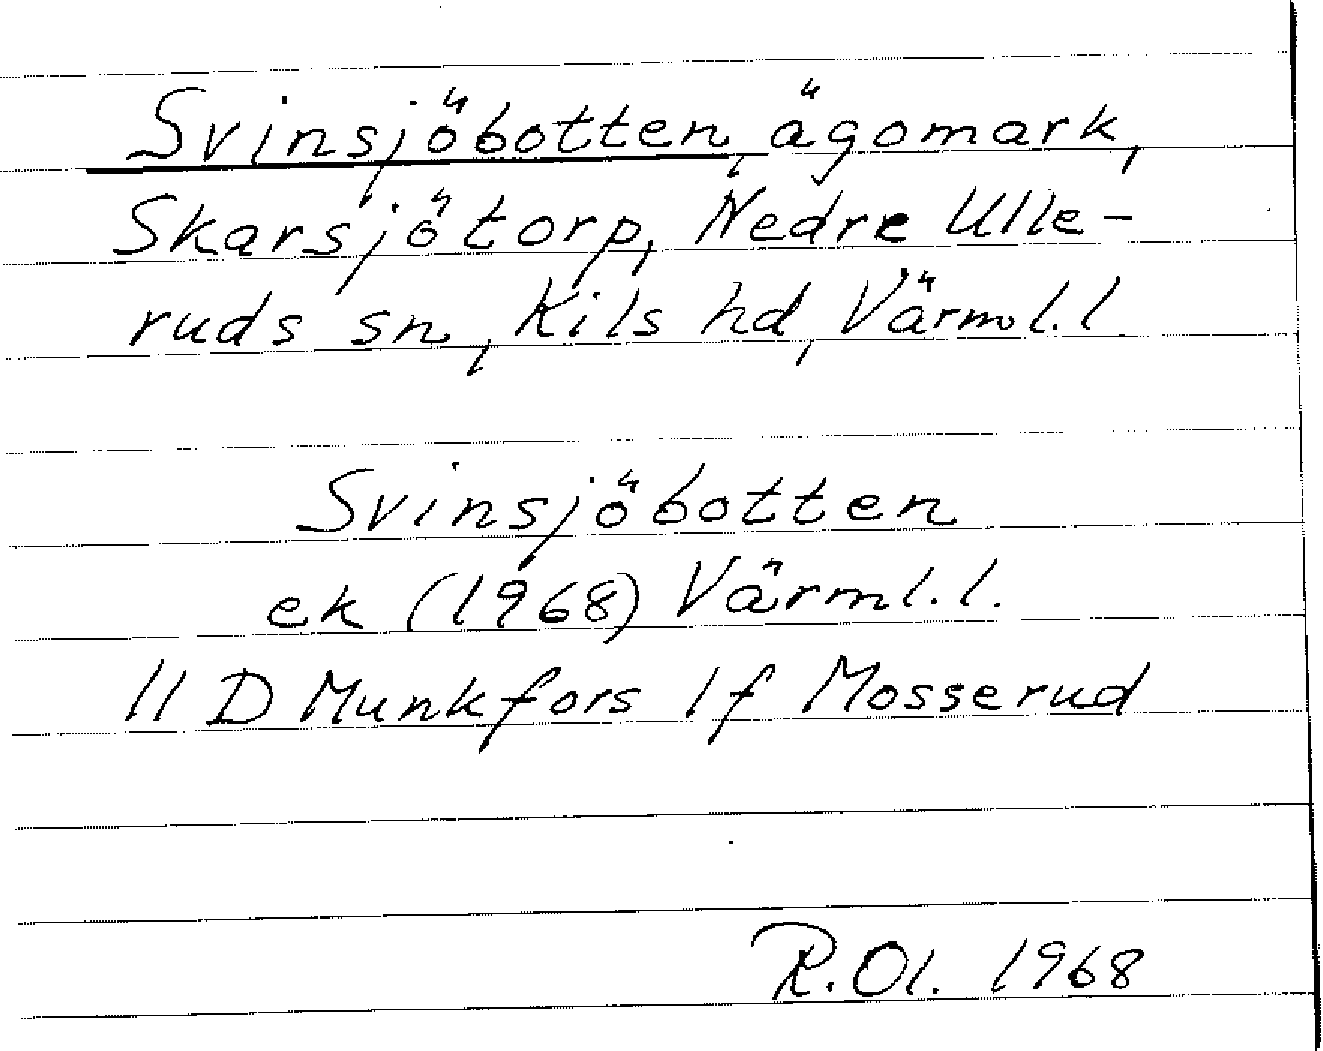 Svinsjöbotten, ägomark,
Skarsjötorp, Nedre Ulle-
ruds sn, Kils hd, Värml.l.
Svinsjöbotten
ek (1968) Värml.l.
11 D Munkfors 1f Mosserud
R.Ol. 1968